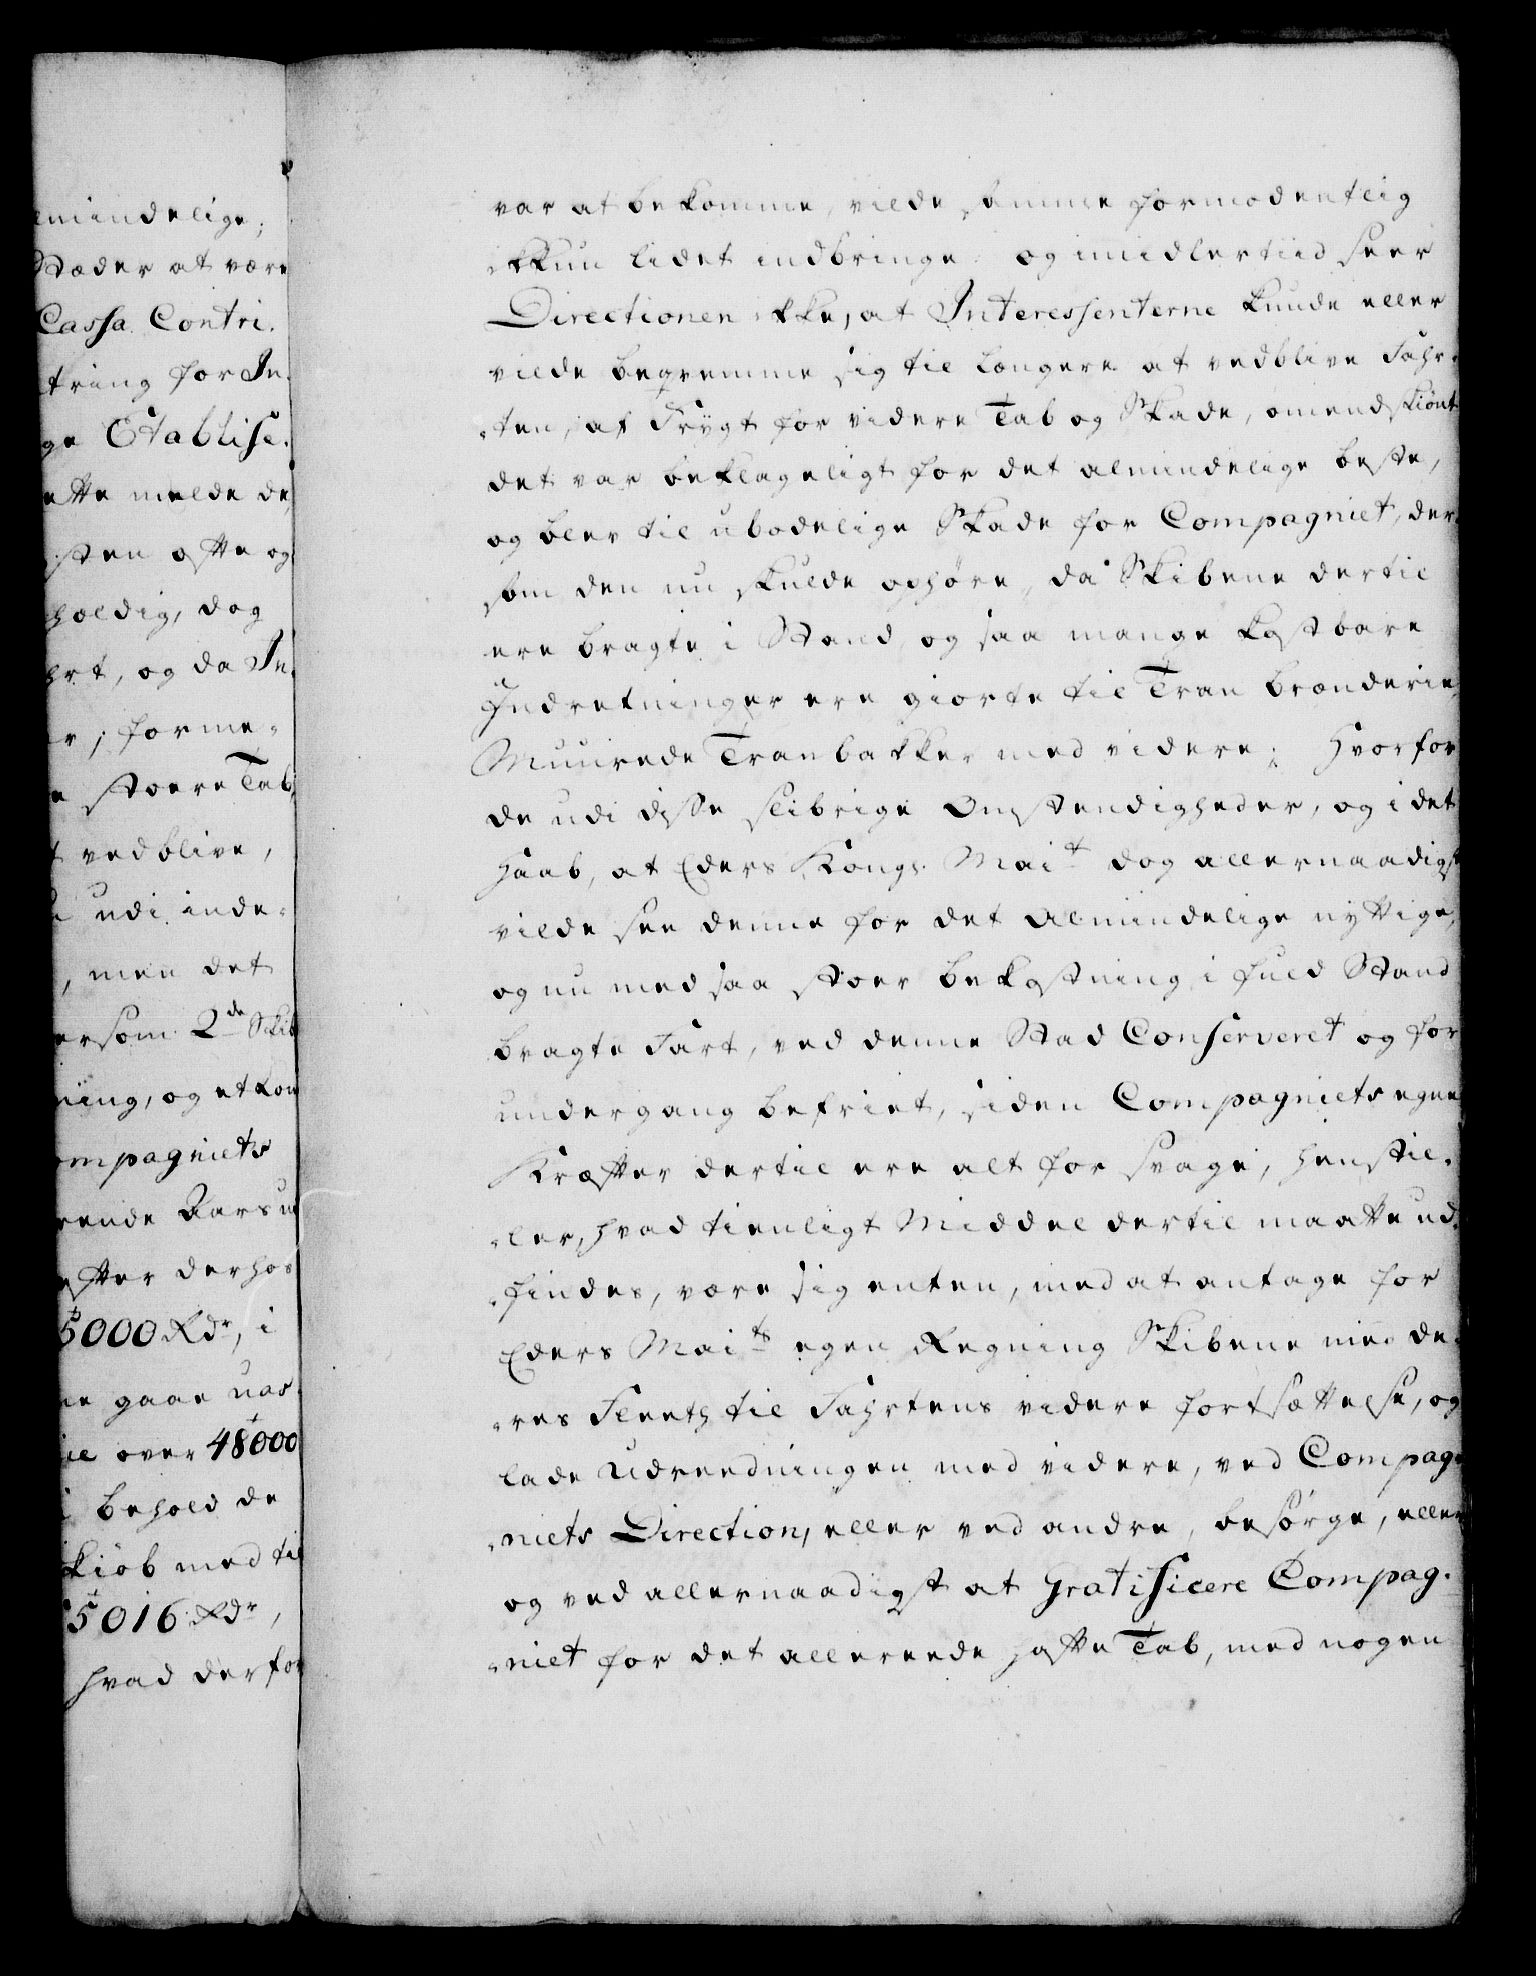 lmindelige;
Stæder at være
Cassa Contri.
tring for In.
ge Etablise.
ette melde de,
sten ofte og
holdig, dog
hrt, og da In.
r; forme,
e stoere Tab,
t vedblive,
udi inde,
, men det
ersom 2de Skib
ning, og et kom
ompagniets
rende Aars u
efter derhos
5000 Rdr, i
ne gaae uas
il over 48000
i behold de
kiøb med til
5016 Rdr,
hvad derfor
var at bekomme, vilde samme formodentlig
ikkun lidet indbringe og imidlertiid seer
Directionen ikke, at Interessenterne kunde eller
vilde beqvemme sig til længere at vedblive Fahr-
-ten, af Frygt for videre Tab og Skade, omendskiønt
det var beklageligt for det almindelige beste,
og blev til ubodelige Skade for Compagniet, der
som den nu skulde ophøre, da Skibene dertil
ere bragte i Stand, og saa mange kostbare
Indretninger ere giorte til Tran brænderie
Muurede Tranbakker med videre; Hvorfor
de udi disse slibrige Omstendigheder, og i det
Haab, at Eders Kongl. Mait dog allernaadigst
vilde see denne for det Almindelige nyttige,
og nu med saa stoer bekostning i fuld Stand
bragte Fart, ved denne Stad Conserveret og for
undergang befriet, siden Compagniets egne
Kræfter dertil ere alt for svage, henstil-
-ler, hvad tienligt Middel dertil maatte ud-
-findes, være sig enten, med at antage for
Eders Maits egen Regning Skibene med de-
-res Fleeth til Fahrtens videre fortsættelse, og
lade Udreedningen med videre, ved Compag-
-niets Direction, eller ved andre, besørge, eller
og ved allernaadigst at Gratificere Compag-
-niet for det allereede hafte Tab, med nogen